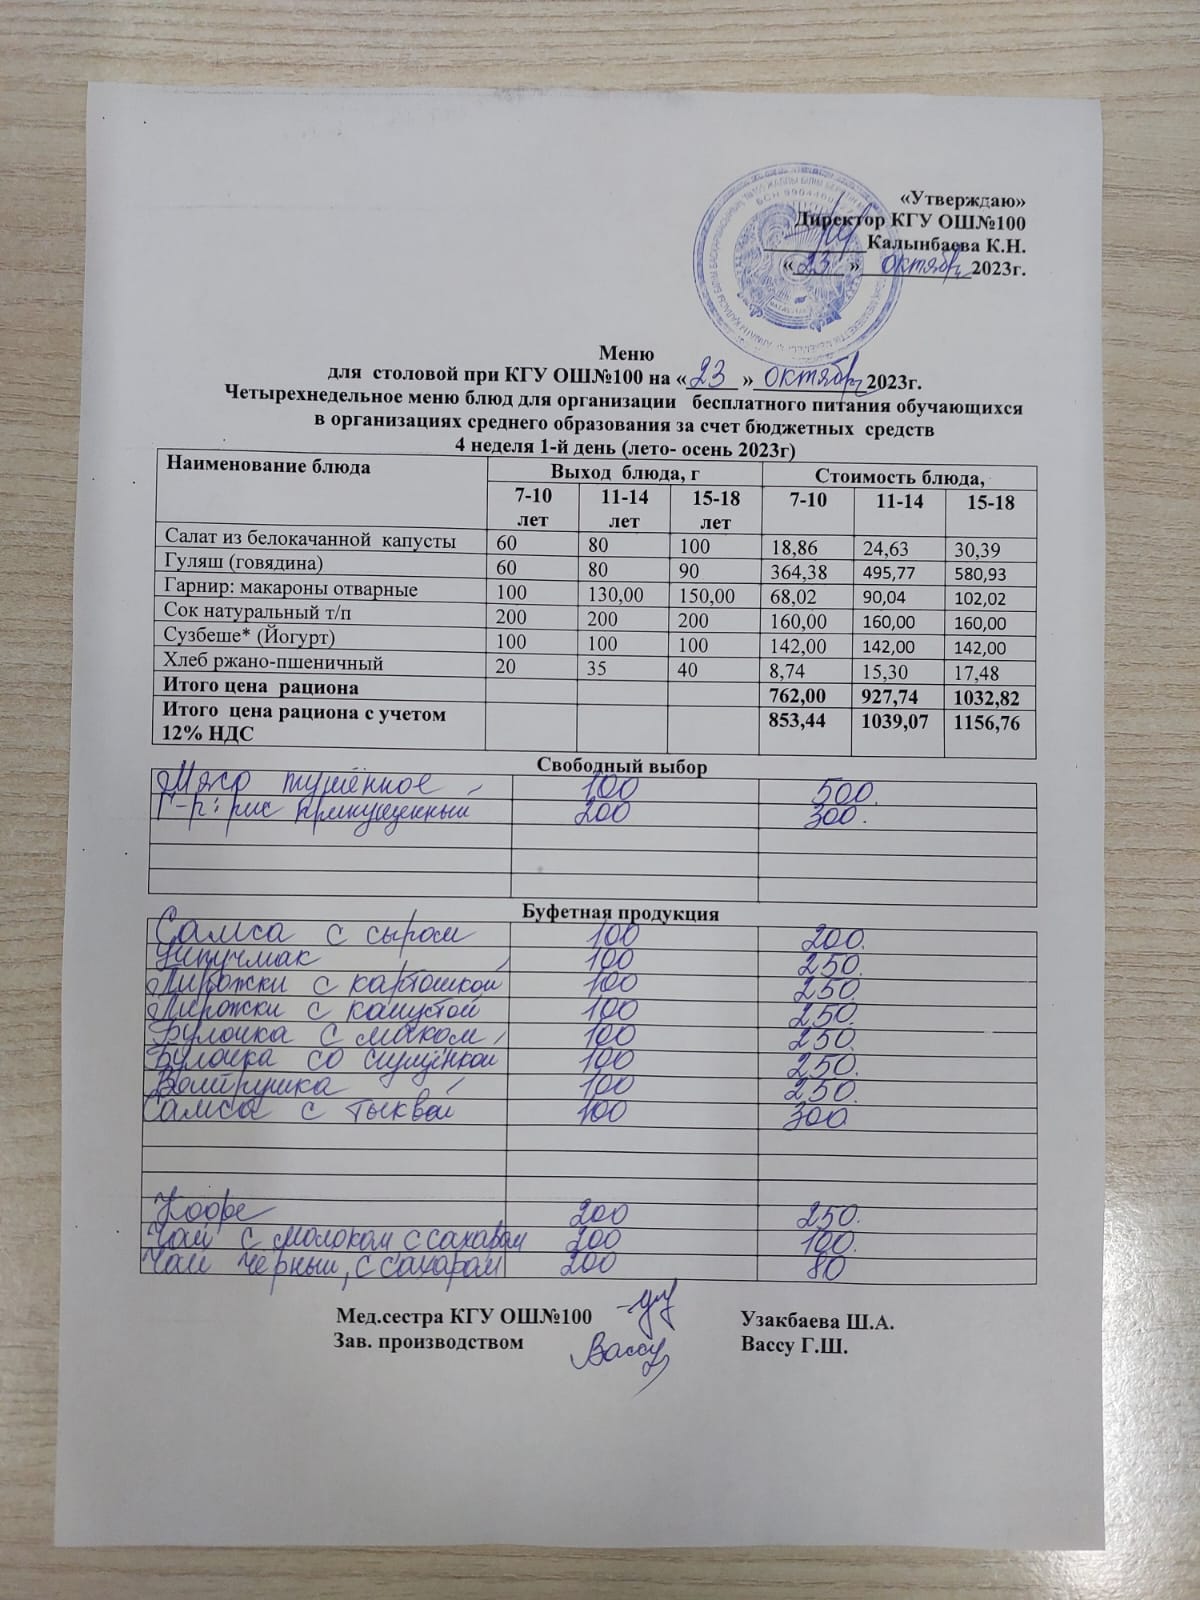 «Утверждаю»
Директор КГУ ОШ№100
Калынбаева К.Н.
«23» октября 2023г.
Меню
для столовой при КГУ ОШ№100 на «23» октября 2023г.
Четырехнедельное меню блюд для организации бесплатного питания обучающихся
в организациях среднего образования за счет бюджетных средств
4 неделя 1-й день (лето- осень 2023г)
Наименование блюда Выход блюда, г Стоимость блюда,
7-10 лет 11-14 лет 15-18 лет 7-10 11-14 15-18
Салат из белокачанной капусты 60 80 100 18,86 24,63 30,39
Гуляш (говядина) 60 80 90 364,38 495,77 580,93
Гарнир: макароны отварные 100 130,00 150,00 68,02 90,04 102,02
Сок натуральный т/п 200 200 200 160,00 160,00 160,00
Сузбеше* (Йогурт) 100 100 100 142,00 142,00 142,00
Хлеб ржано-пшеничный 20 35 40 8,74 15,30 17,48
Итого цена рациона 762,00 927,74 1032,82
Итого цена рациона с учетом 853,44 1039,07 1156,76
12% НДС
Свободный выбор
Мясо тушённое 100 500.
Г-р: рис припущенный 200 300.
Буфетная продукция
Самса с сыром 100 200.
100 250.
Пирожки с картошкой 100 250.
Пирожки с капустой 100 250.
Булочка с маком 100 250.
Булочка со сгущёнкой 100 250.
Ватрушка 100 250.
Самса с тыквой 100 300
Кофе 200 250.
Чай с молоком с сахаром 200 100.
Чай черный, с сахаром 200 80
Мед.сестра КГУ ОШ№100 Узакбаева Ш.А.
Зав. производством Вассу Вассу Г.Ш.